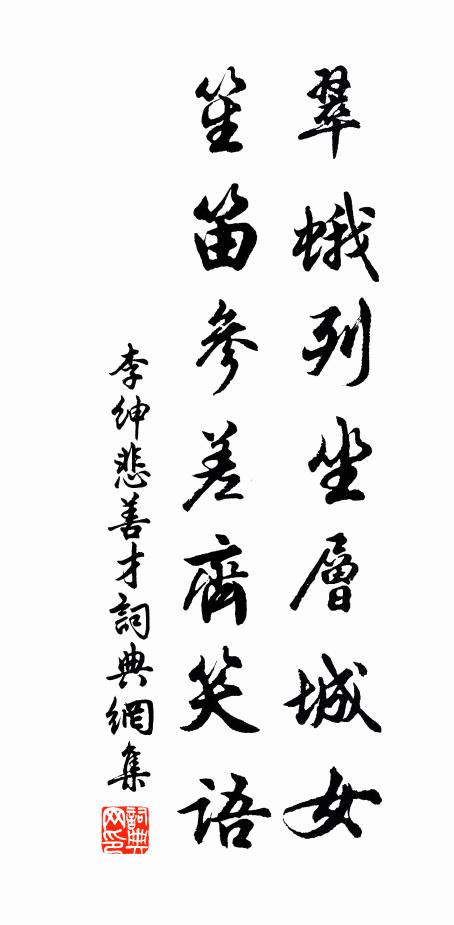 翠蛾列坐層城女
笙笛參差齊笑語
李紳悲善才詞典網集
詞典網印